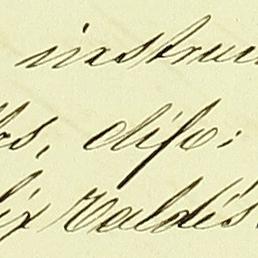 instruc
os, dijo:
lix Valdés